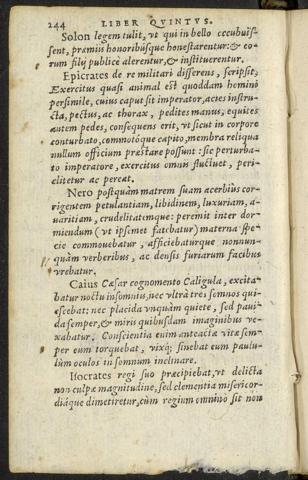 244 LIBER QVINTVS.
Solon legem tulit, vt qui in bello occubuis-
sent, præmiis honoribúsque honestarentur: & eo-
rum filij publicè alerentur, & instituerentur.
Epicrates de re militari disserens, scripsit,
Exercitus quasi animal est quoddam homini
persimile, cuius caput sit imperator, acies instru-
cta, pectus, ac thorax, pedites manus, equites
autem pedes, consequens erit, vt sicut in corpore
conturbato, commotóque capite, membra reliqua
nullum officium præstare possunt: sic perturba-
to imperatore, exercitus omnis fluctuet, peri-
clitetur ac pereat.
Nero postquàm matrem suam acerbiùs cor-
rigentem petulantiam, libidinem, luxuriam, a-
uaritiam, crudelitatemque: peremit inter dor-
miendum (vt ipsemet fatebatur) materna spe-
cie commouebatur, afficiebaturque nonnun-
quàm verberibus, ac densis furiarum facibus
vrebatur.
Caius Cæsar cognomento Caligula, excita-
batur noctu insomniis, nec vltrà tres somnos qui-
escebat: nec placida vnquàm quiete, sed paui-
da semper, & miris quibusdam imaginibus ve-
xabatur. Conscientia enim anteactæ vitæ sem-
per eum torquebat, vixq; sinebat eum paulu-
lùm oculos in somnum inclinare.
Isocrates regi suo præcipiebat, vt delicta
non culpæ magnitudine, sed clementia misericor-
diáque dimetiretur, cùm regium omninò sit non